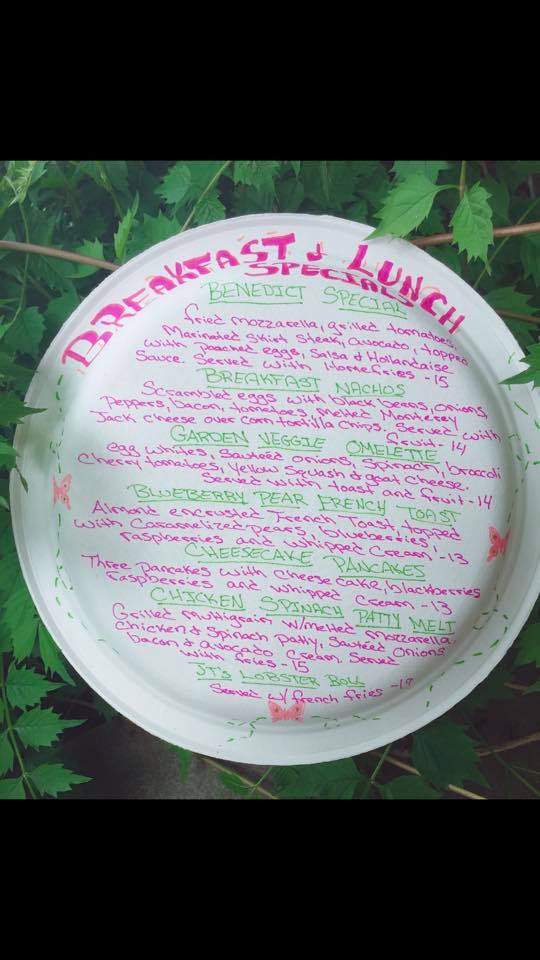 BREAKFAST & LUNCH
SPECIALS
BENEDICT SPECIAL
fried mozzarella, grilled tomatoes,
Marinated Skirt Steak, avocado, topped
with poached eggs, Salsa & Hollandaise
Sauce. Served with Homefries - 15
BREAKFAST NACHOS
Scrambled eggs with black beans, onions,
Peppers, bacon, tomatoes, melted Monterey
Jack cheese over corn tortilla chips. Served with
fruit - 14
GARDEN VEGGIE OMELETTE
egg whites, sautéed onions, Spinach, broccoli
Cherry tomatoes, yellow Squash & goat cheese.
Served with toast and fruit - 14
BLUEBERRY PEAR FRENCH TOAST
Almond encrusted French Toast, topped
with Caramelized pears, blueberries,
raspberries and whipped Cream - 13
CHEESECAKE PANCAKES
Three pancakes with Cheesecake, blackberries
raspberries and whipped Cream - 13
CHICKEN SPINACH PATTY MELT
Grilled Multigrain w/melted Mozzarella,
Chicken & Spinach patty, Sautéed Onions
bacon & avocado Cream. Served
with fries - 15
JT'S LOBSTER ROLL
Served w/ french fries - 19